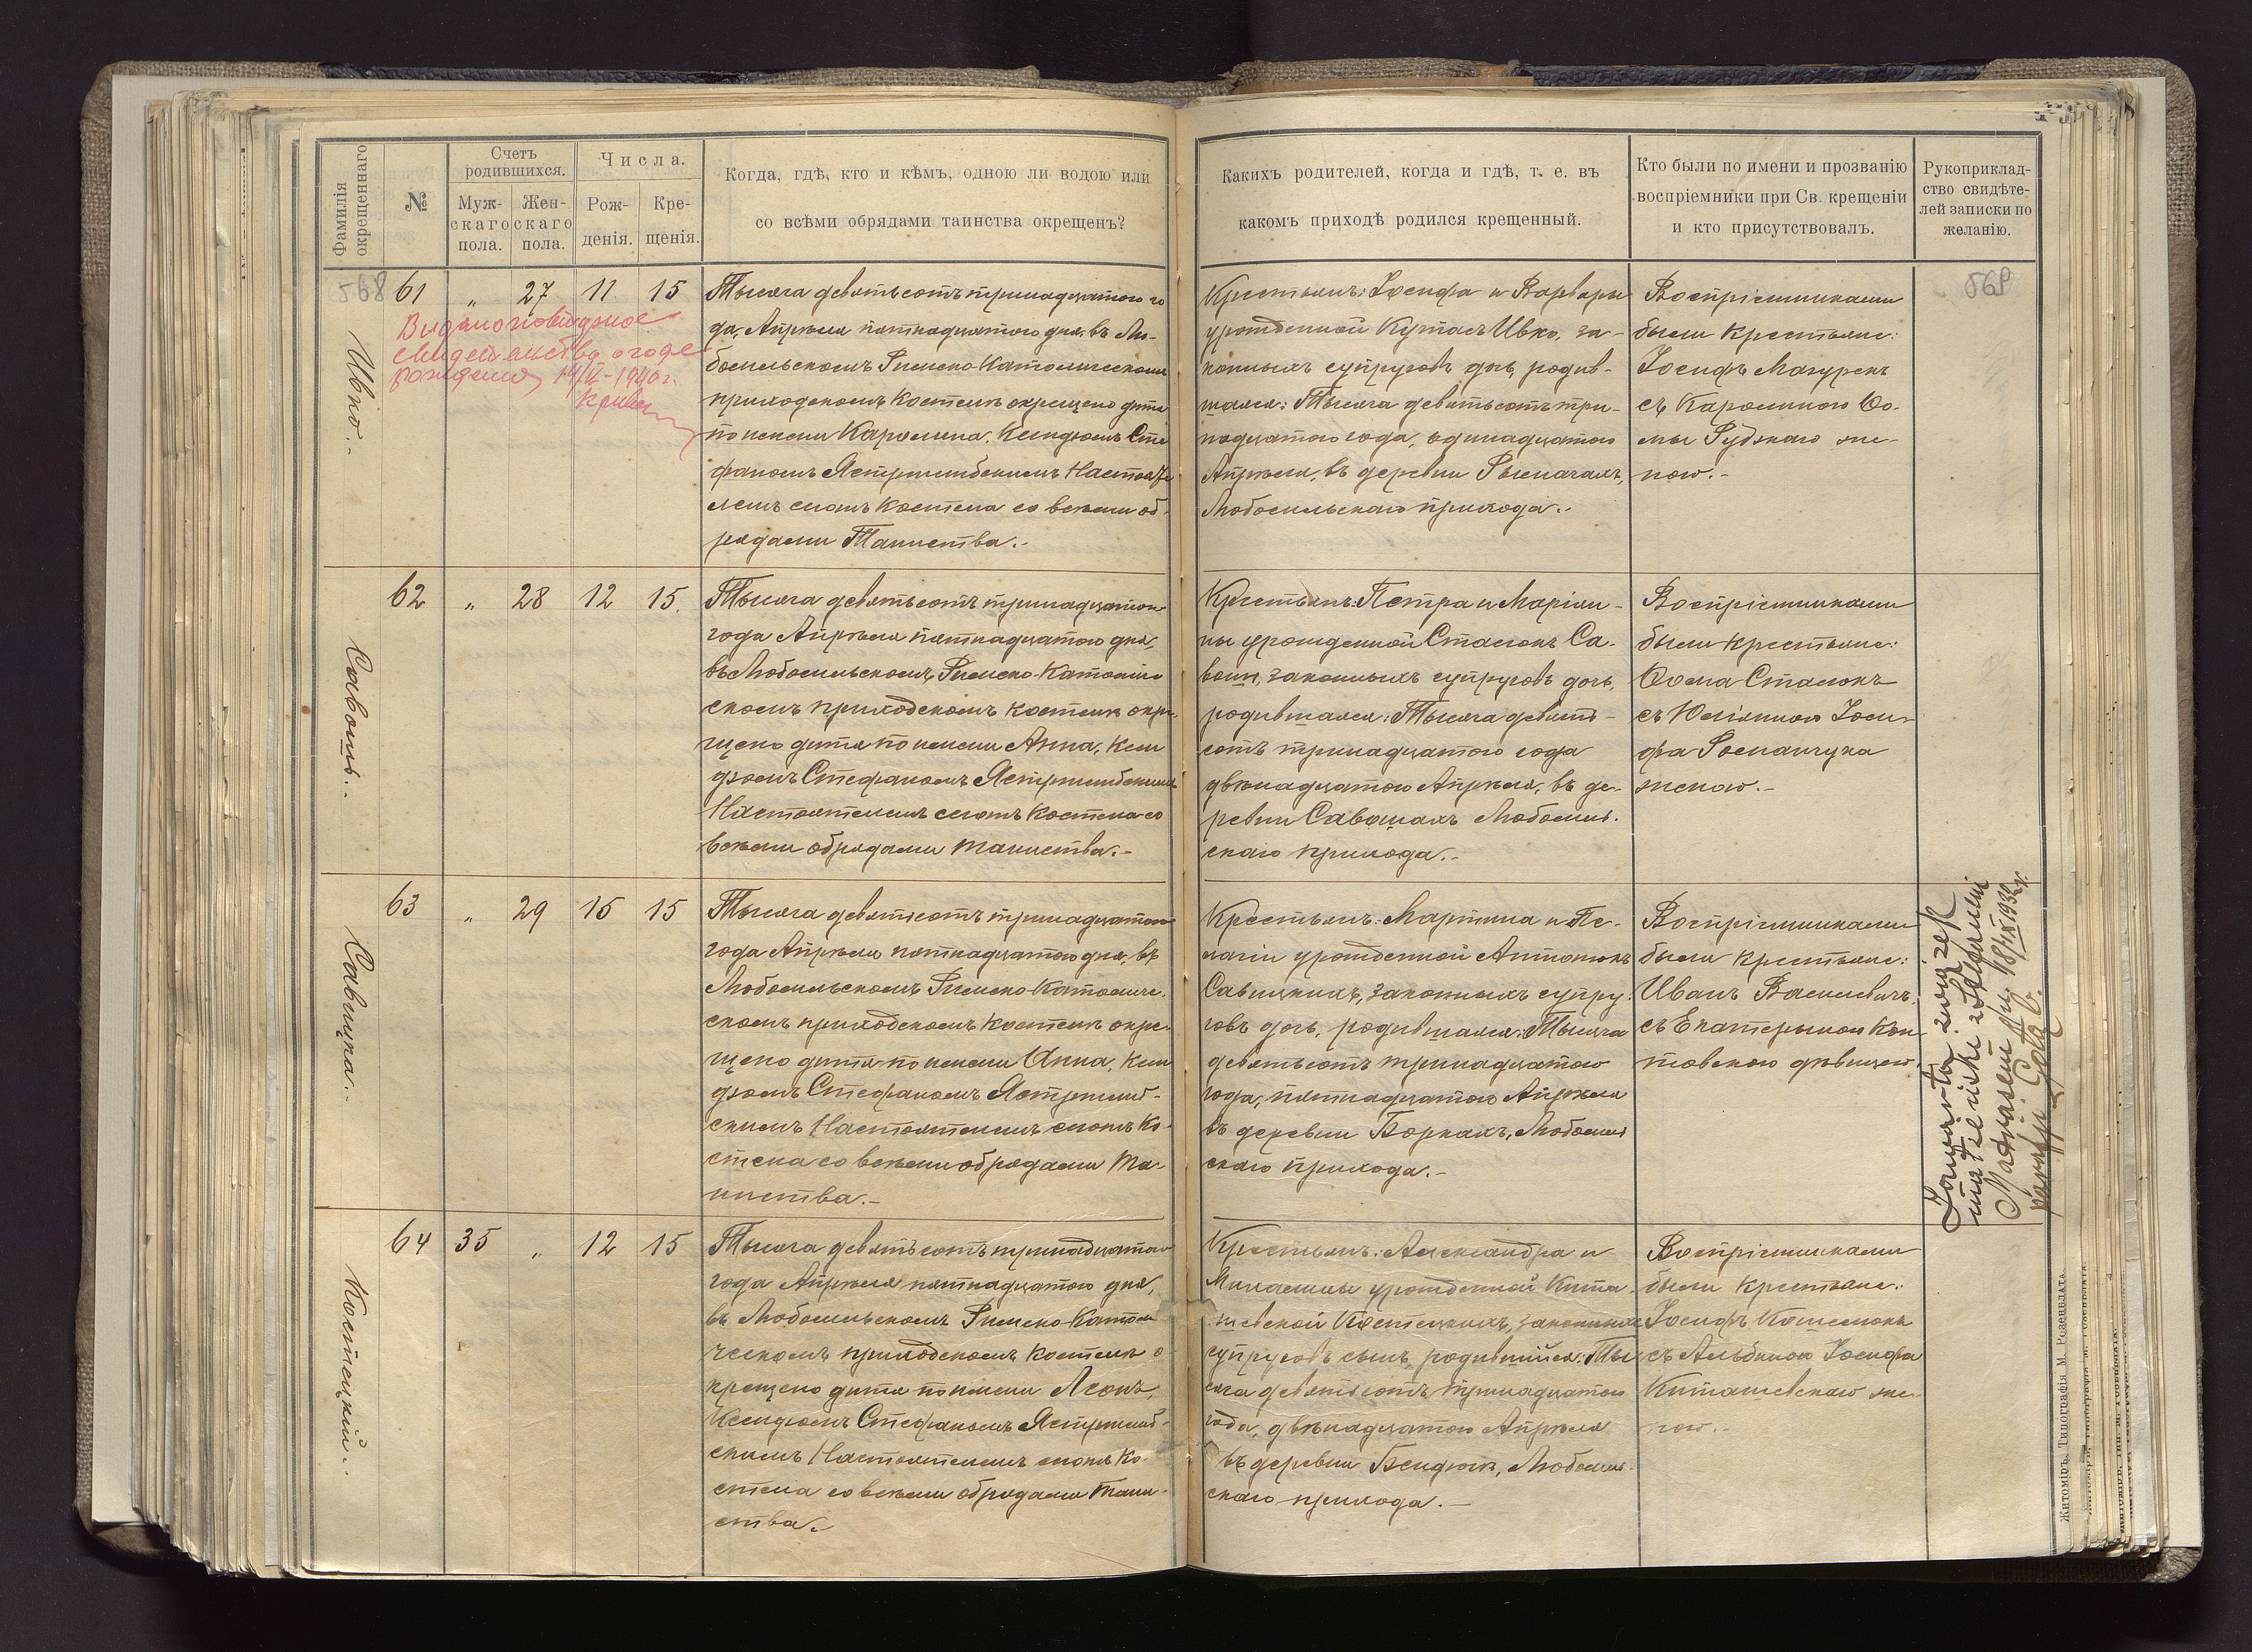 Фамилія окрещеннаго
№
Счетъ родившихся.
Муж-
скаго
пола.
Жен-
скаго
пола.
Числа.
Рож-
денія.
Кре-
щенія.
Когда, гдѣ, кто и кѣмъ, одною ли водою или
со всѣми обрядами таинства окрещенъ?
Какихъ родителей, когда и гдѣ, т. е. въ
какомъ приходѣ родился крещенный.
Кто были по имени и прозванію
воспріемники при Св. крещеніи
и кто присутствовалъ.
Рукоприклад-
ство свидѣте-
лей записки по
желанію.
568
Ивко.-
61 „ 27 11 15
Выдано повторное
свидетельство о годе
рождения
1940 г.
Тысяча девятьсотъ тринадцатаго го
да, Апрѣля пятнадцатаго дня, въ Лю-
бомльскомъ Римско-Католическомъ
приходскомъ костелѣ окрещено дитя
по имени Каролина, Ксендзомъ Сте
фаномъ Ястржембскимъ Настояте
лемъ сего костела со всѣми об-
рядами Таинства.-
Крестьянъ: Іосифа и Варвары
урожденной Кутасъ Ивко, за-
конныхъ супруговъ дочь, родив-
шаяся: Тысяча девятьсотъ три-
надцатаго года, одинадцатаго
Апрѣля, въ деревни Рымачахъ,
Любомльскаго прихода.-
Воспріемниками
были крестьяне:
Іосифъ Мазурекъ
съ Каролиною Ѳо-
мы Рудзкаго же-
ною.-
568
Савошъ.-
62 „ 28 12 15.
Тысяча девятьсотъ тринадцатаго
года Апрѣля пятнадцатаго дня,
въ Любомльскомъ Римско-Католиче
скомъ приходскомъ костелѣ окре-
щено дитя по имени Анна, Ксен
дзомъ Стефаномъ Ястржембскимъ
Настоятелемъ сего костела со
всѣми обрядами таинства.-
Крестьянъ: Петра и Маріян-
ны урожденной Стасюкъ Са-
вошъ, законныхъ супруговъ дочь,
родившаяся: Тысяча девять-
сотъ тринадцатаго года
двѣнадцатаго Апрѣля, въ де-
ревни Савошахъ Любомль-
скаго прихода.-
Воспріемниками
были крестьяне:
Ѳома Стасюкъ
съ Юліянною Іоси-
фа Романчука
женою.-
Савицка.-
63 „ 29 15 15
Тысяча девятьсотъ тринадцатаго
года Апрѣля пятнадцатаго дня, въ
Любомльскомъ Римско-Католиче-
скомъ приходскомъ костелѣ окре-
щено дитя по имени Анна, Ксен
дзомъ Стефаномъ Ястржемб-
скимъ Настоятелемъ сего ко-
стела со всѣми обрядами Та-
инства.-
Крестьянъ: Мартина и Пе-
лагіи урожденной Антонюкъ
Савицкихъ, законныхъ супру-
говъ дочь, родившаяся: Тысяча
девятьсотъ тринадцатаго
года, пятнадцатаго Апрѣля
въ деревни Боркахъ, Любомль
скаго прихода.-
Воспріемниками
были крестьяне:
Иванъ Василевичъ
съ Екатериною Кон
товскою дѣвицею.
Zawarła związek
małżeński z
18/IX 1932 r.
Костецкій.-
64 35 „ 12 15
Тысяча девятьсотъ тринадцатаго
года Апрѣля пятнадцатаго дня,
въ Любомльскомъ Римско-Католи
ческомъ приходскомъ костелѣ о-
крещено дитя по имени Леонъ,
Ксендзомъ Стефаномъ Ястржемб-
скимъ Настоятелемъ сего ко-
стела со всѣми обрядами Таин-
ства.-
Крестьянъ: Александра и
урожденной Кита-
шевской Костецкихъ, законныхъ
супруговъ сынъ, родившійся: Ты
сяча девятьсотъ тринадцатаго
года, двѣнадцатаго Апрѣля
въ деревни Бендюгѣ, Любомль-
скаго прихода.-
Воспріемниками
были крестьяне:
Іосифъ
съ Альбиною Іосифа
Киташевскаго же-
ною.-
Житоміръ, Типографія М. Розенблата.